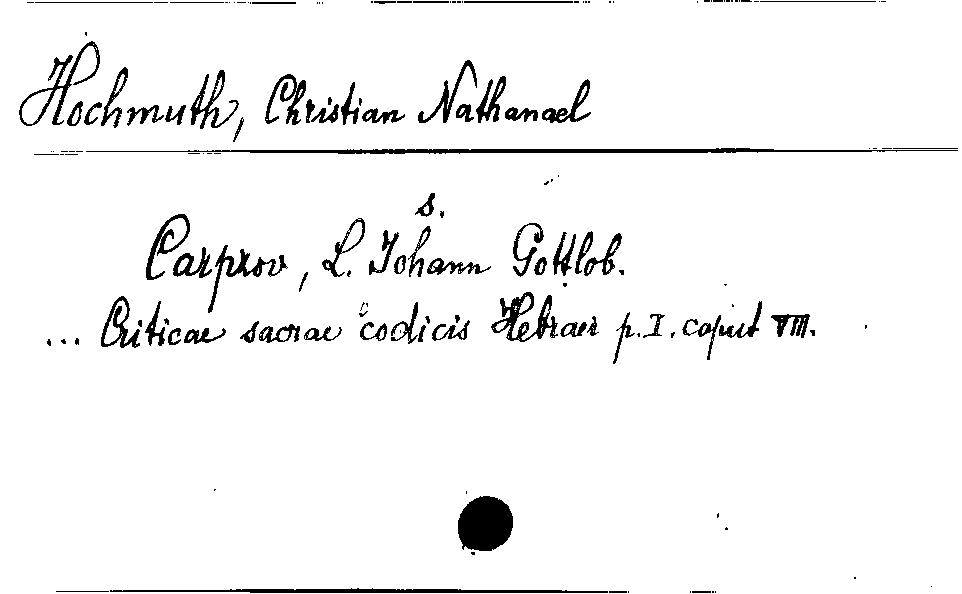 Hochmuth, Christian Nathanael
s.
Carpzov, L. Johann Gottlob.
... Criticae sacrae codicis Hebraei p. I. caput VIII.